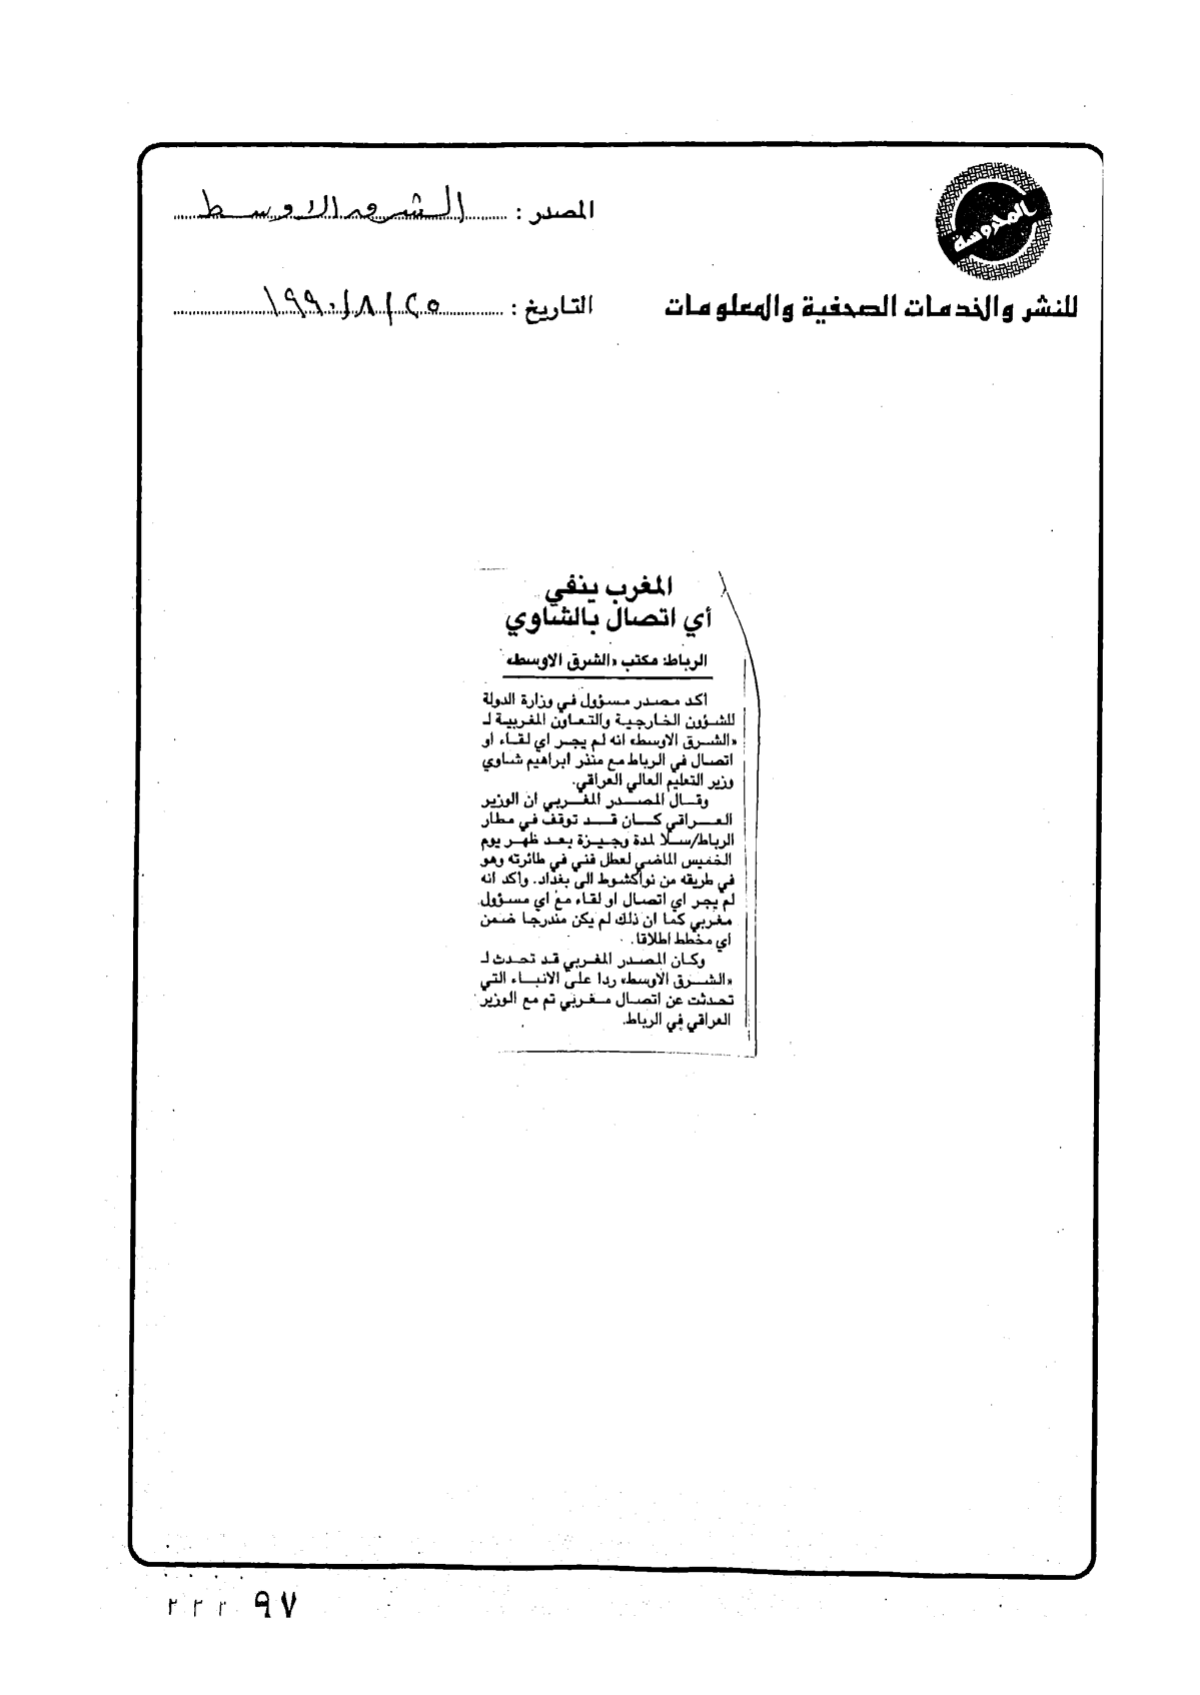 المحروسة
المصدر : الشرق الاوسط
للنشر والخدمات الصحفية والمعلومات
التاريخ : ٢٥ / ٨ / ١٩٩٠
المغرب ينفي
أي اتصال بالشاوي
الرباط: مكتب «الشرق الاوسط»
اكد مصدر مسؤول في وزارة الدولة
للشؤون الخارجية والتعاون المغربية لـ
«الشرق الاوسط» انه لم يجر اي لقاء او
اتصال في الرباط مع منذر ابراهيم شاوي
وزير التعليم العالي العراقي.
وقال المصدر المغربي ان الوزير
العراقي كان قد توقف في مطار
الرباط/سلا لمدة وجيزة بعد ظهر يوم
الخميس الماضي لعطل فني في طائرته وهو
في طريقه من نواكشوط الى بغداد. واكد انه
لم يجر اي اتصال او لقاء مع اي مسؤول
مغربي كما ان ذلك لم يكن مندرجا ضمن
اي مخطط اطلاقا.
وكان المصدر المغربي قد تحدث لـ
«الشرق الاوسط» ردا على الانباء التي
تحدثت عن اتصال مغربي تم مع الوزير
العراقي في الرباط.
٩٧